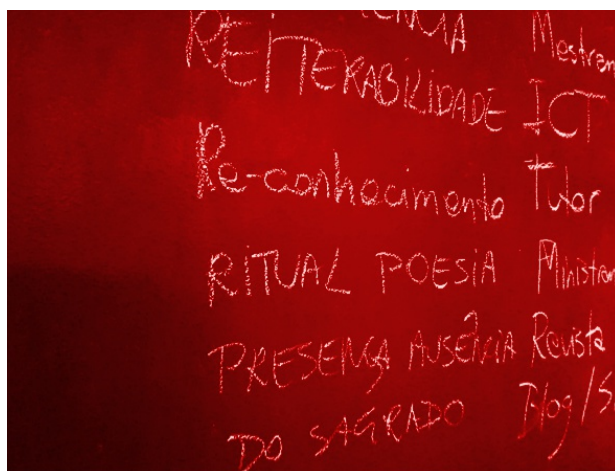 REITERABILIDADE ICT
Re-conhecimento Tutor
RITUAL POESIA
PRESENÇA AUSÊNCIA Revista
DO SAGRADO Blog/S